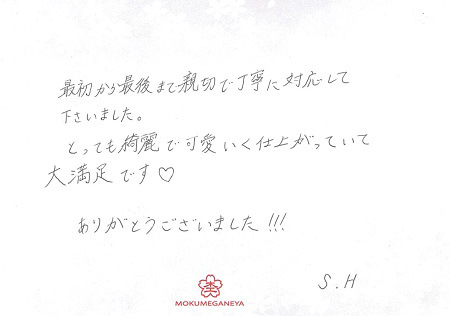 最初から最後まで親切で丁寧に対応して
下さいました。
とっても綺麗で可愛いく仕上がっていて
大満足です♡
ありがとうございました!!!
S.H
杢
MOKUMEGANEYA